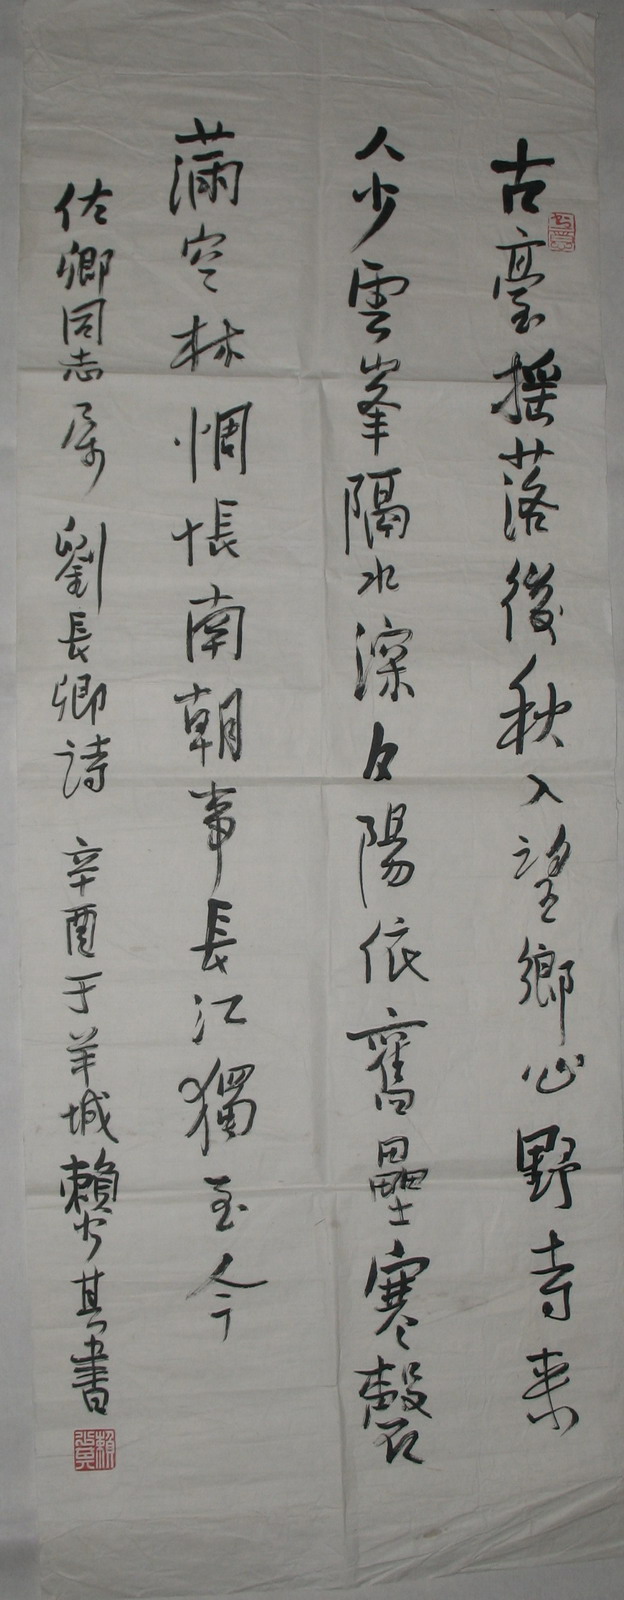 古臺搖落後秋入望鄉心野寺來
人少雲峯隔水深夕陽依舊壘寒磬
滿空林惆悵南朝事長江獨至今
佐卿同志属 劉長卿詩 辛酉于羊城賴少其書
賴少其